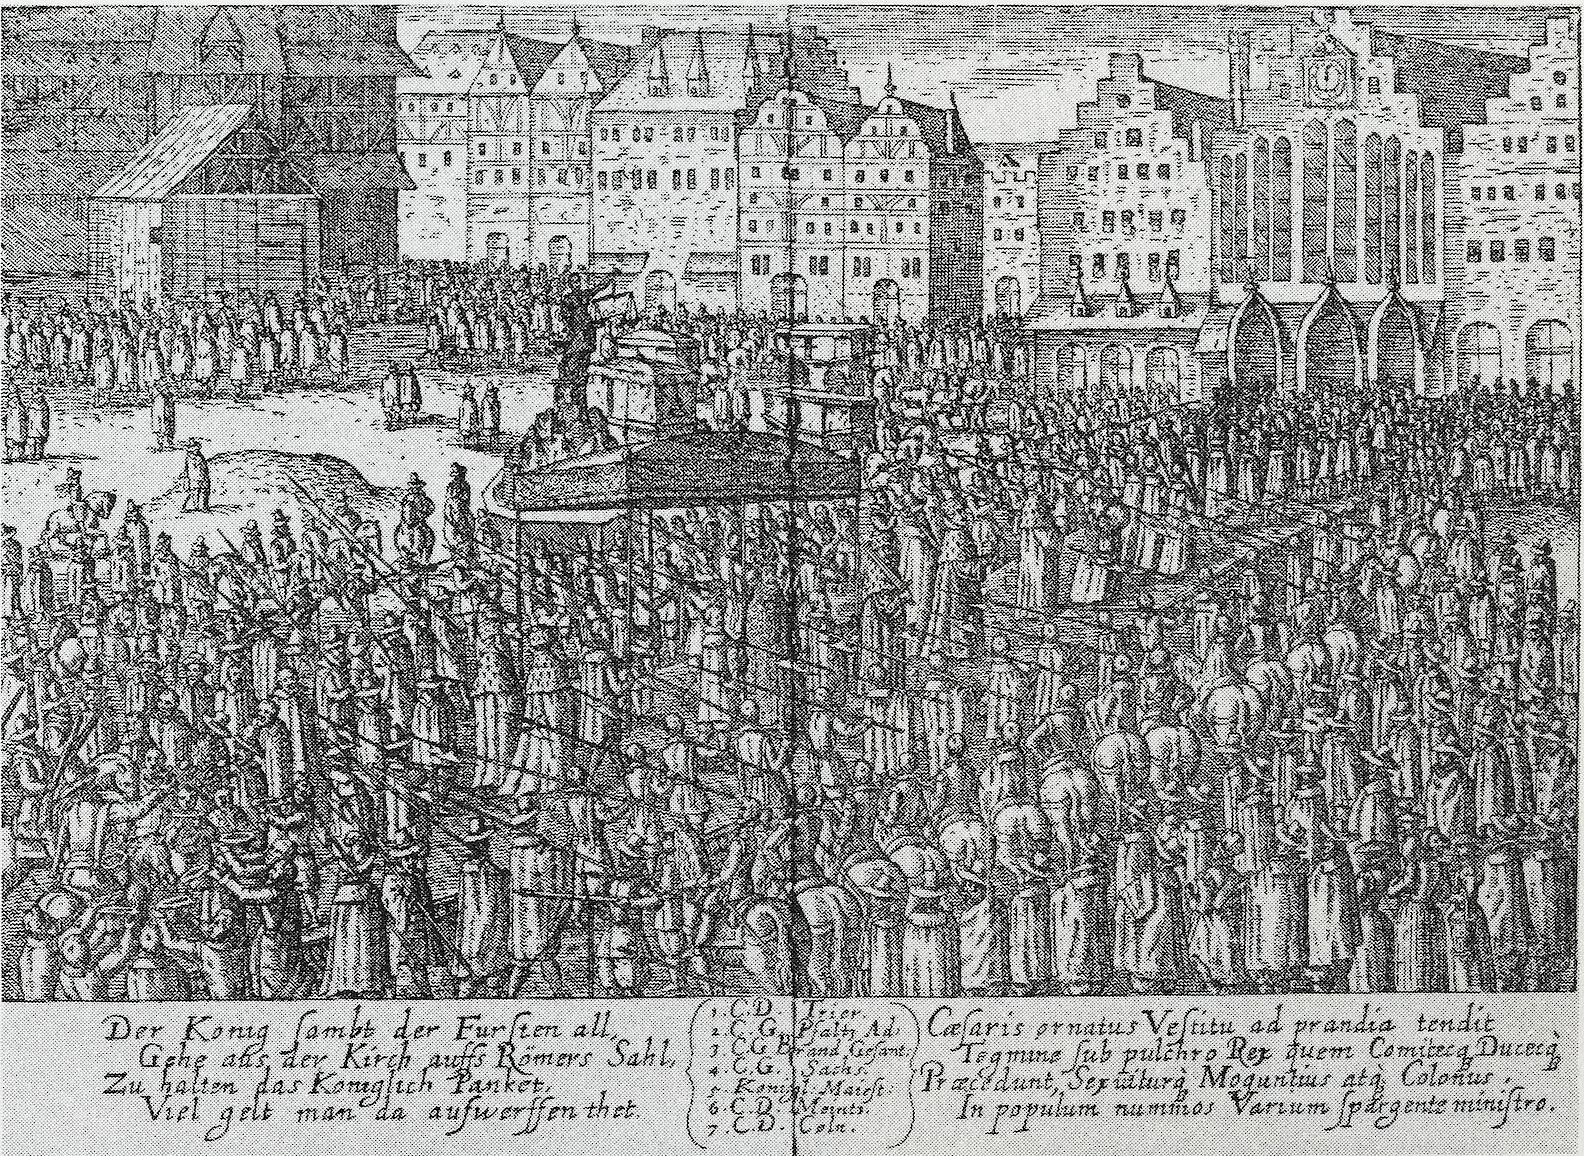 Der König sambt der Fursten all,
Gehe aus der Kirch auffs Römers Sahl,
Zu halten das Königlich Panket,
Viel gelt man da aufwerffen thet.
1. C. D. Trier.
2. C. G. Pfaltz Ad.
3. C. G Brand. Gesant.
4. C. G. Sachs.
5. Königl. Maiest.
6. C. D. Meintz.
7. C. D. Cöln.
Cæsaris ornatus Vestitu ad prandia tendit
Tegmine sub pulchro Rex quem Comitesq̃ Ducesq̃
Præcedunt, Moguntius atq̃ Colonus.
In populum nummos Varium spargente ministro.